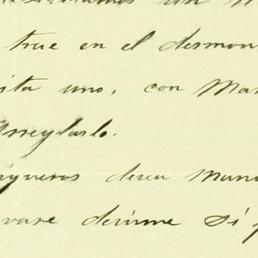 un
true en el desmon
ita uno, con Mar
Arreglarlo.
igueros decea Man
varse decirme si p